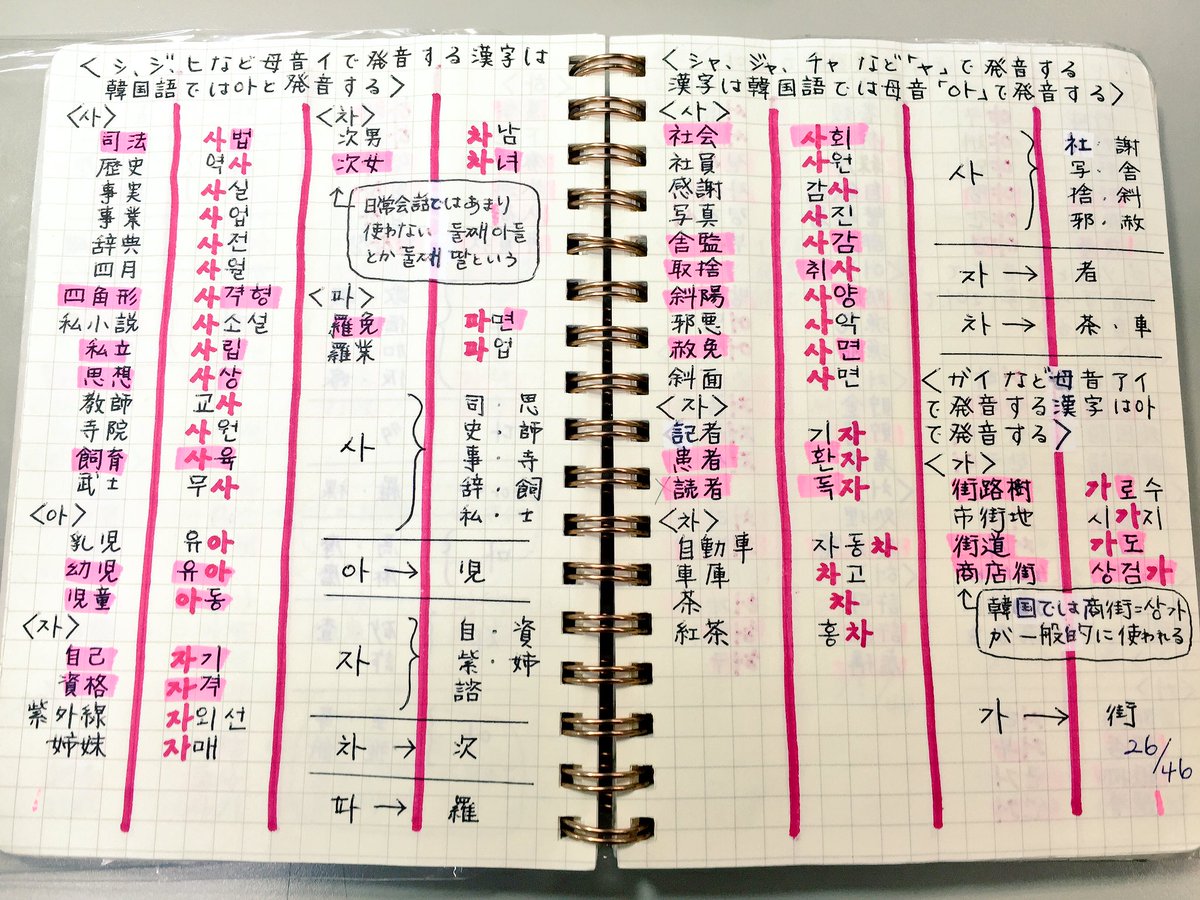 <シ、ジ、ヒなど母音イで発音する漢字は
韓国語では아と発音する>
<사>
司法 사법
歴史 역사
事実 사실
事業 사업
辞典 사전
四月 사월
四角形 사격형
私小説 사소설
私立 사립
思想 사상
教師 교사
寺院 사원
飼育 사육
武士 무사
<아>
乳児 유아
幼児 유아
児童 아동
<자>
自己 자기
資格 자격
紫外線 자외선
姉妹 자매
<차>
次男 차남
次女 차녀
↑
日常会話ではあまり
使わない 둘째아들
とか둘째 딸という
<파>
羅免 파면
羅業 파업
사
司・思
史・師
事・寺
辞・飼
私・士
아→児
자
自・資
紫・姉
諮
차→次
파→羅
<シャ、ジャ、チャ など「ャ」で発音する
漢字は韓国語では母音「아」で発音する>
<사>
社会 사회
社員 사원
感謝 감사
写真 사진
舎監 사감
取捨 취사
斜陽 사양
邪悪 사악
赦免 사면
斜面 사면
<자>
記者 기자
患者 환자
読者 독자
<차>
自動車 자동차
車庫 차고
茶 차
紅茶 홍차
사
社・謝
写・舎
捨・斜
邪・赦
자→者
차→茶・車
<ガイなど母音アイ
で発音する漢字は아
で発音する>
<가>
街路樹 가로수
市街地 시가지
街道 가도
商店街 상점가
↑
韓国では商街=상가
が一般的に使われる
가→街
26/46